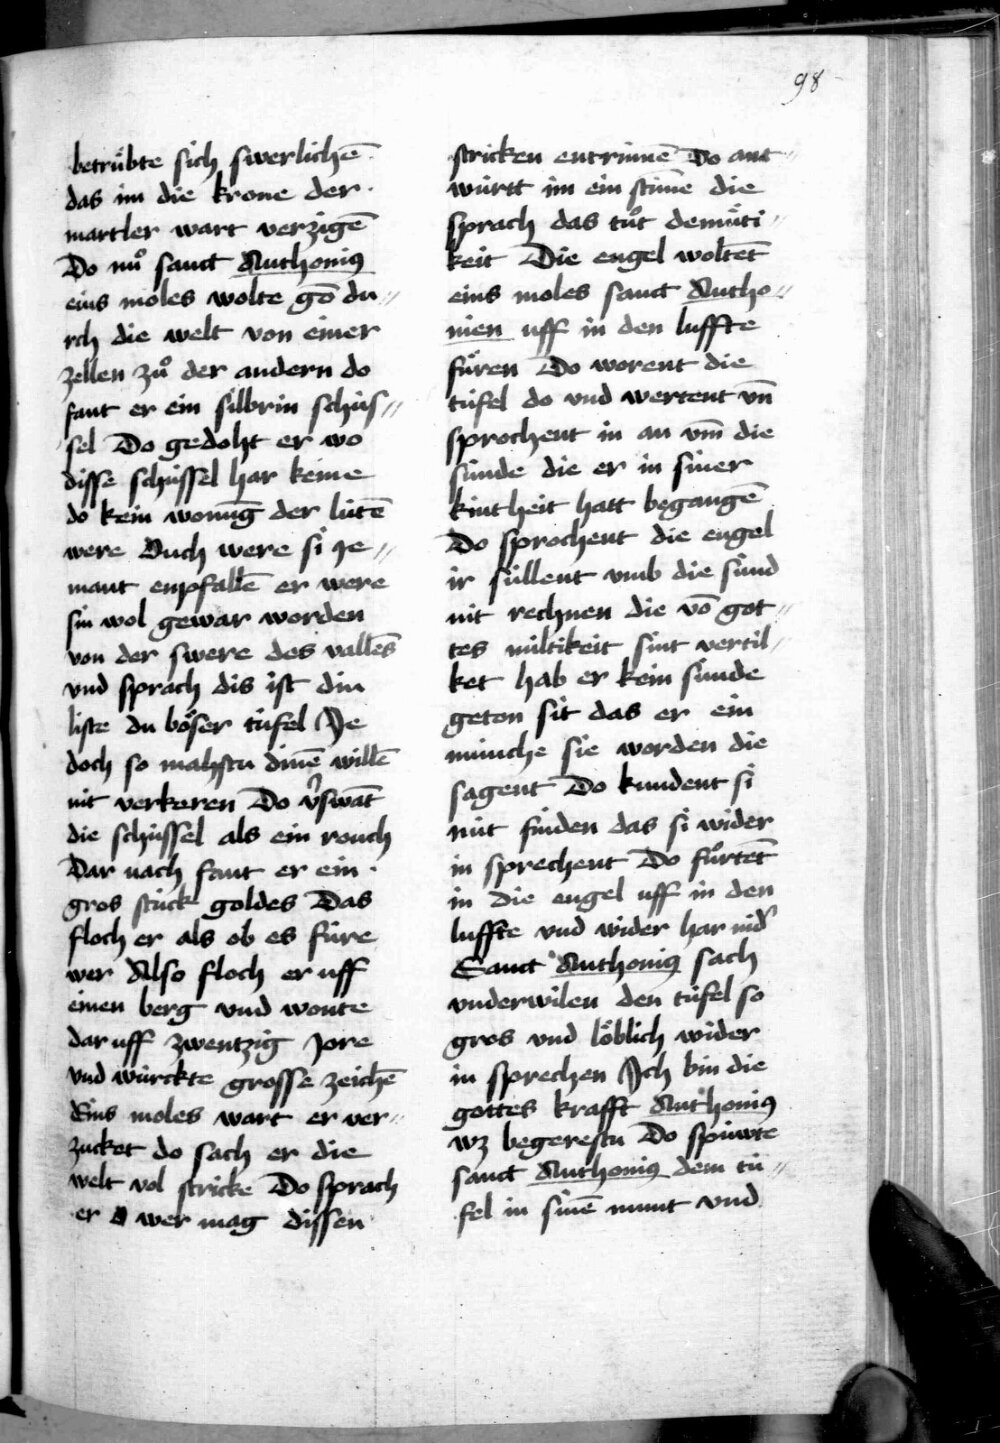 98
betruͤbte sich swerlichē
das im die krone der
martler wart verzigē
Do nuͦ sanct Anthonius
eins moles wolte gō du//
rch die welt von einer
zellen zuͦ der andern do
fant er ein silbrin schüs//
sel Do gedoht er wo
disse schüssel har keme
do kein wonūg der lütē
were Ouch were si ye//
mant enpfallē er were
sin wol gewar worden
von der swere des vallēs
vnd sprach dis ist din
liste du boͤser tüfel Je
doch so mahstu dinē willē
nit verkeren Do v̕swāt
die schüssel als ein rouch
Dar nach fant er ein
gros stück goldes Das
floch er als ob es füre
wer Also floch er uff
einen berg vnd wonte
dar uff zwentzig jore
vnd würckte grosse zeichē
Eins moles wart er ver//
zucket do sach er die
welt vol stricke Do sprach
er O wer mag dissen
stricken entrinnē Do ant//
württ im ein stim̄e die
sprach das tuͦt demuͤti//
keit Die engel woltēt
eins moles sanct Antho//
nien uff in den luffte
fuͤren Do worent die
tüfel do vnd wertent vn̄
sprochent in an vm̄ die
sünde die er in siner
kintheit hatt begangē
Do sprochent die engel
ir süllent vmb die sünd
nit rechnen die vō got//
tes miltikeit sint vertil//
ket hab er kein sünde
geton sit das er ein
münche sie worden die
sagent Do kundent si
nüt finden das si wider
in sprechent Do fuͦrtēt
in die engel uff in den
luffte vnd wider har nid̕
Sanct Anthonius sach
vnderwilen den tüfel so
gros vnd loͤblich wider
in sprechen Jch bin die
gottes krafft Anthonius
wz begerestu Do spüwte
sanct Anthonius dem tü//
fel in sinē munt vnd